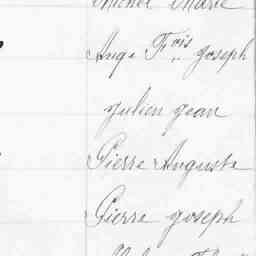 Michel Marie
Ange Fois Joseph
Julien Jean
Pierre Auguste
Pierre Joseph